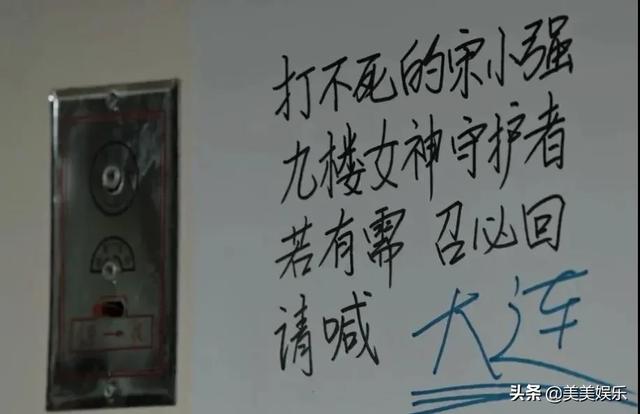 打不死的宋小强
九楼女神守护者
若有需 召必回
请喊 大连
头条 @美美娱乐